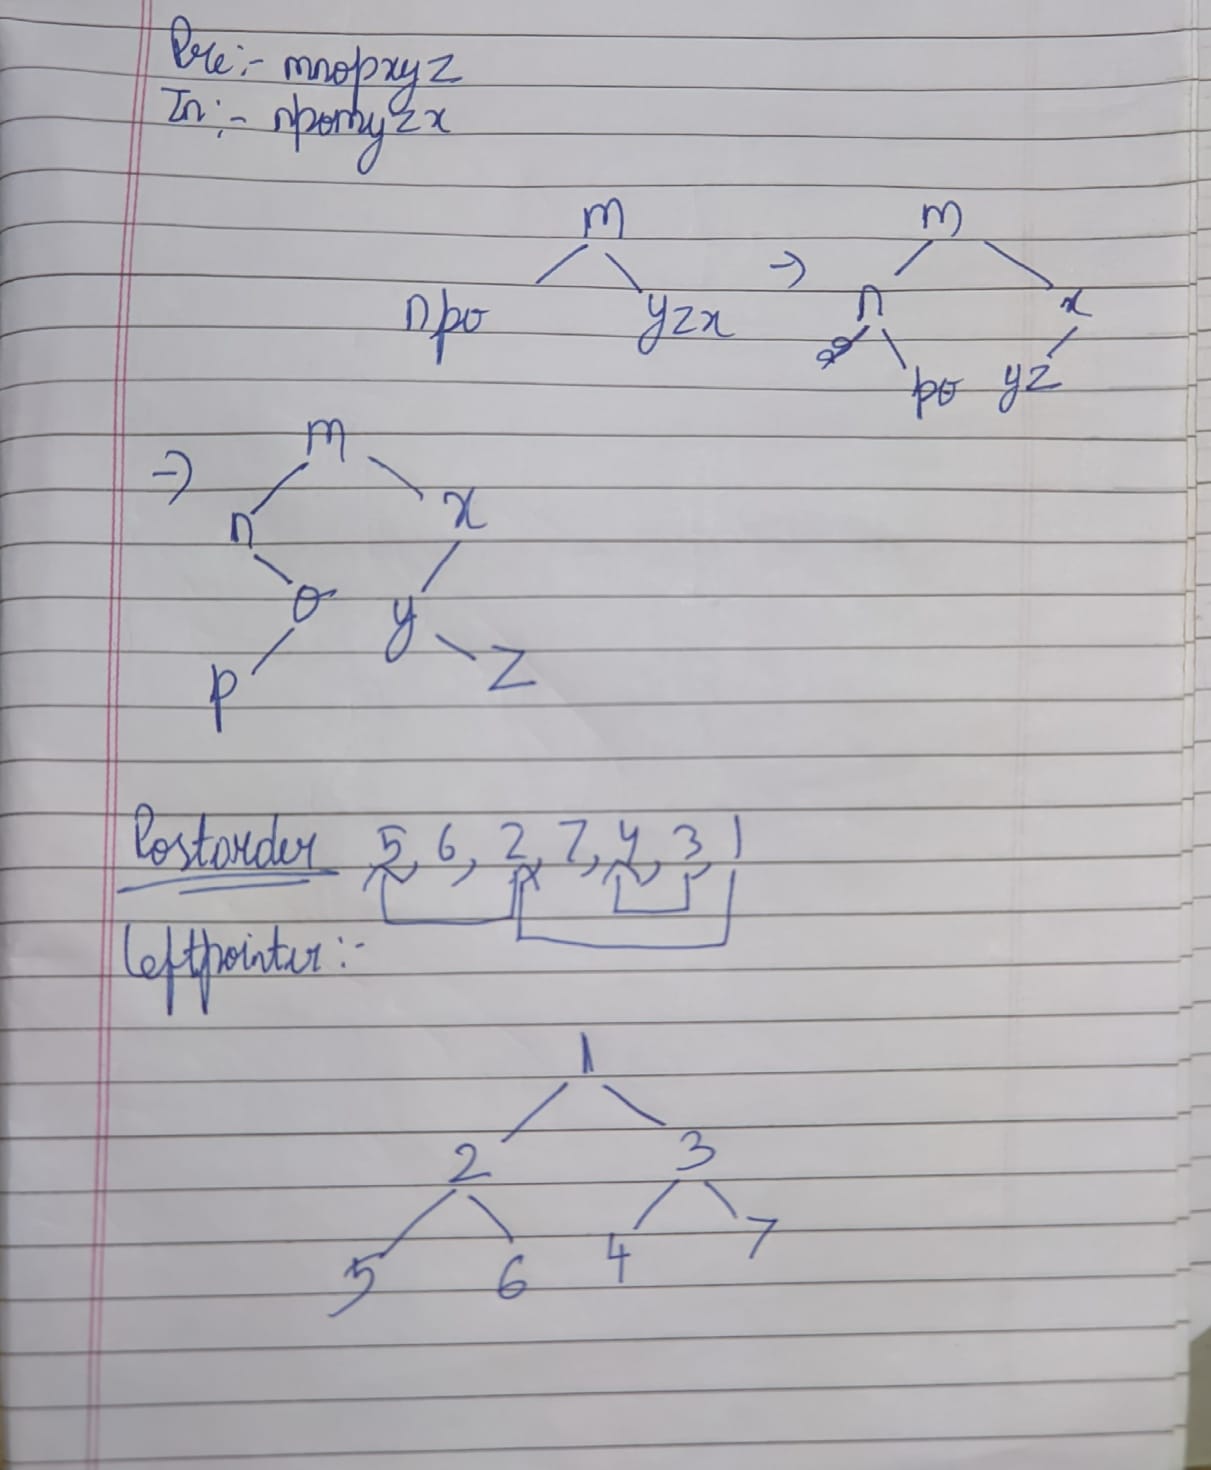 Pre:- mnopxyz
In:- npomyzx
m → m
npo yzx n x
po yz
→ m
n x
o y
p z
Postorder 5, 6, 2, 7, 4, 3, 1
Leftpointer:-
1
2 3
5 6 4 7